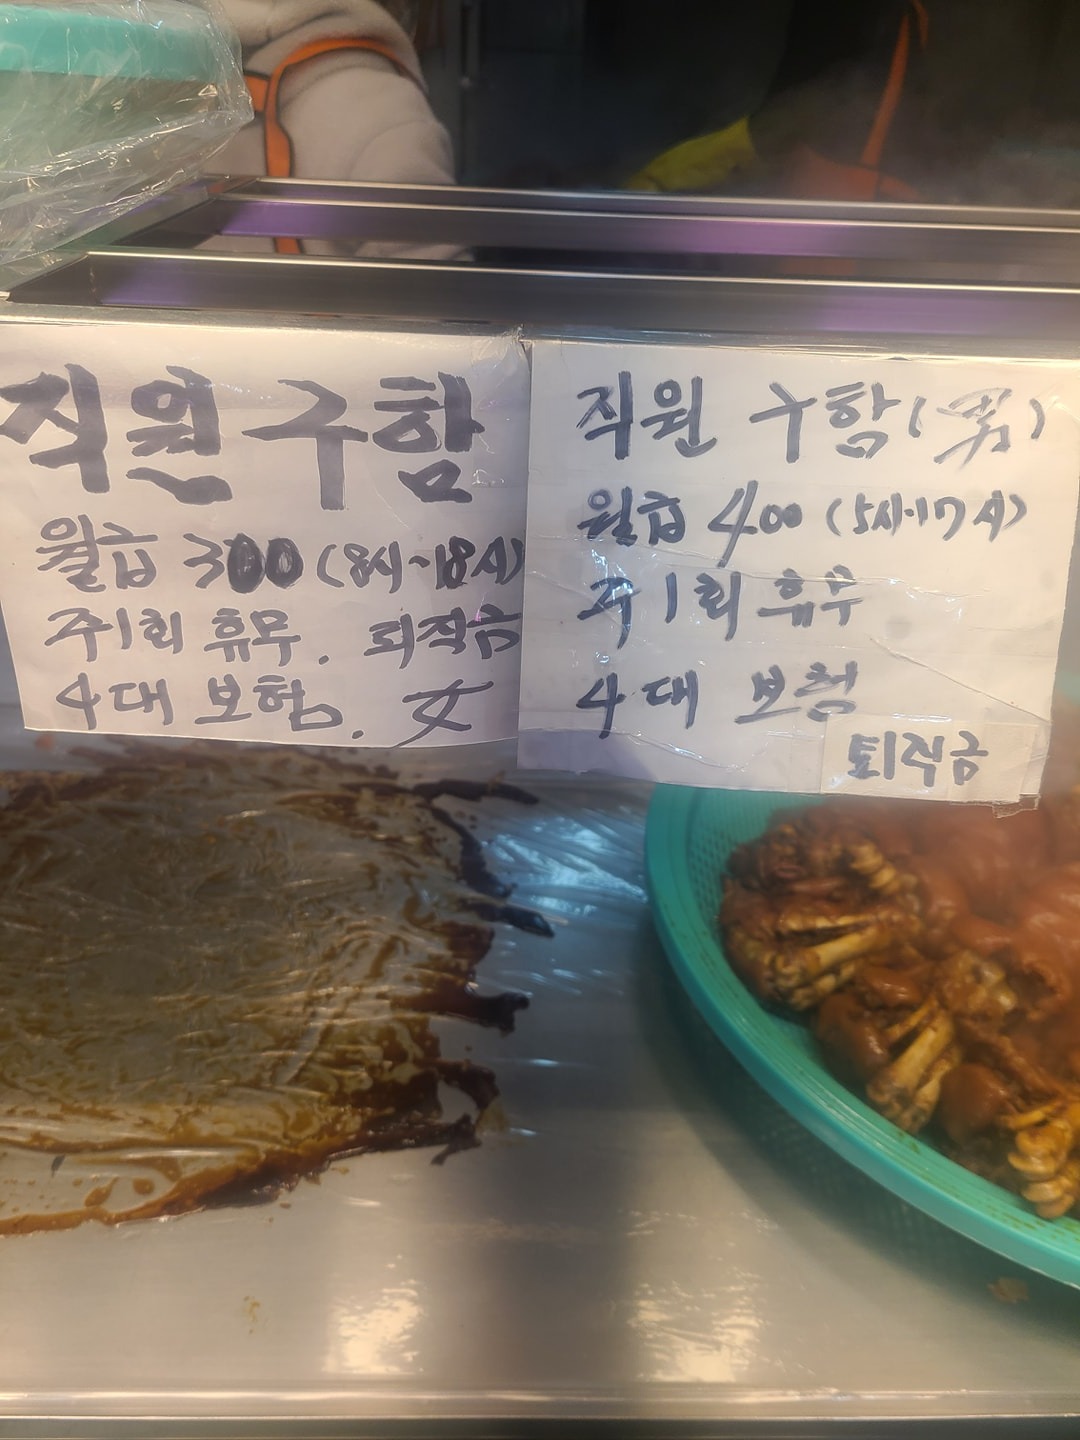 직원 구함
월급 300 (8시~18시)
주1회 휴무. 퇴직금
4대 보험. 女
직원 구함 (男)
월급 400 (5시~17시)
주1회 휴무
4대 보험
퇴직금